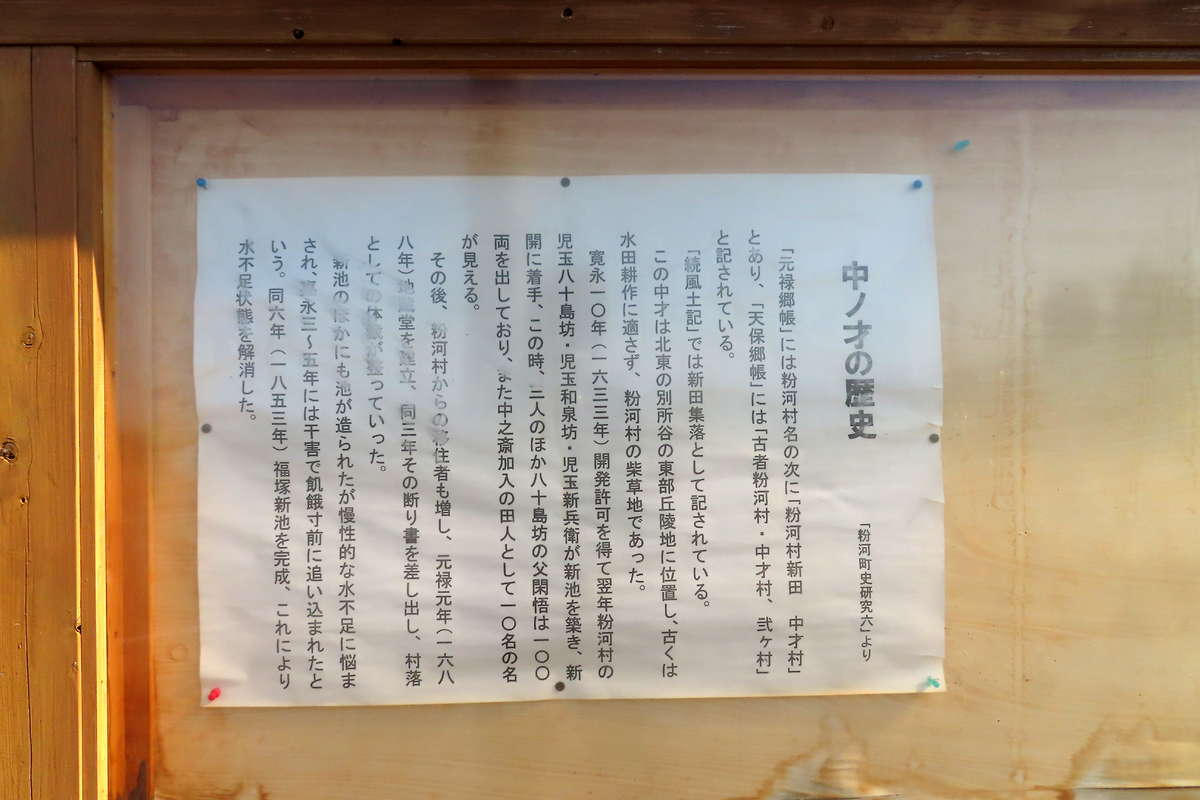 中ノ才の歴史
「粉河町史研究六」より
「元禄郷帳」には粉河村名の次に「粉河村新田　中才村」
とあり、「天保郷帳」には「古者粉河村・中才村、弐ヶ村」
と記されている。
「続風土記」では新田集落として記されている。
この中才は北東の別所谷の東部丘陵地に位置し、古くは
水田耕作に適さず、粉河村の柴草地であった。
寛永一〇年（一六三三年）開発許可を得て翌年粉河村の
児玉八十島坊・児玉和泉坊・児玉新兵衛が新池を築き、新
開に着手、この時、三人のほか八十島坊の父閑悟は一〇〇
両を出しており、また中之斎加入の田人として一〇名の名
が見える。
その後、粉河村からの移住者も増し、元禄元年（一六八
八年）地蔵堂を建立、同三年その断り書を差し出し、村落
としての体裁が整っていった。
新池のほかにも池が造られたが慢性的な水不足に悩ま
され、嘉永三～五年には干害で飢餓寸前に追い込まれたと
いう。同六年（一八五三年）福塚新池を完成、これにより
水不足状態を解消した。